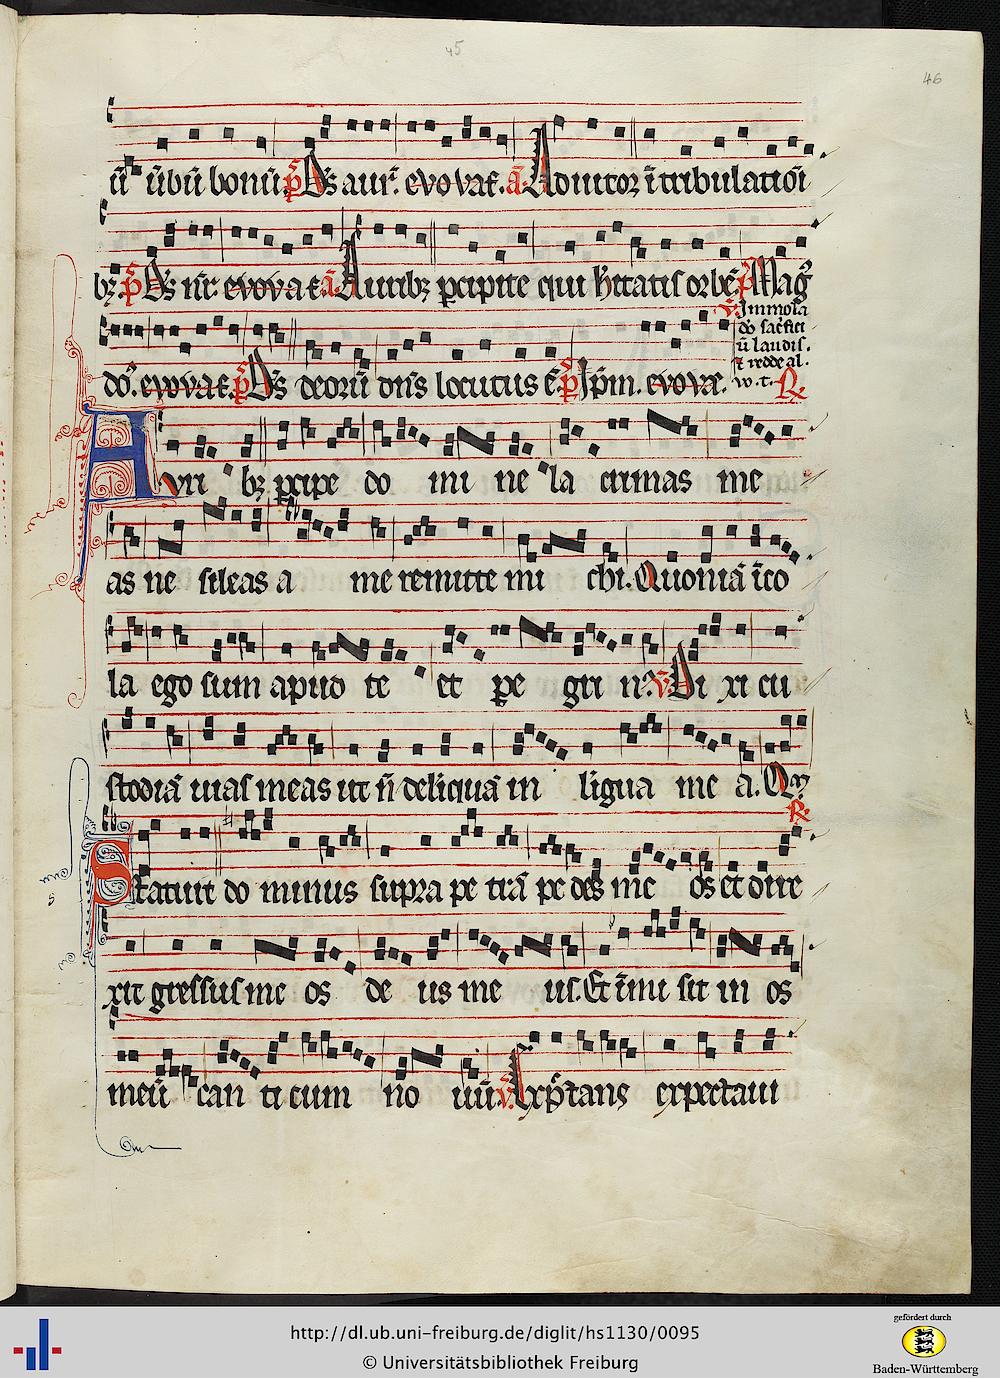 45
46
ū ūbū bonū p̄s Ds aurˀ. evovae. ā. Adiutor ī tribulatiōi
bꝫ. p̄s Ds nr̄. evovae. ā. Auribꝫ p̄cipite qui h̄itatis orbē. p̄s Mag
Immola
dō sacrifici
ū laudis.
t redde al.
do. evovae. p̄s Ds deorū dn̄s locutus ē. p̄s Ip̄m. evovae. w. t. R.
Auri bꝫ ꝑcipe do mi ne la crimas me
as ne sileas a me remitte mi chi. Quoniā īco
la ego sum apud te et pe gri nꝰ. v̄. Di xi cu
stodiā uias meas ut nō deliquā in ligua me a. Qm̄
R.
Statuit do minus supra pe trā pe des me os et dire
xit gressus me os de us me us. Et īmi sit in os
meū can ti cum no uū. v̄. Exp̄ctans expectaui
http://dl.ub.uni-freiburg.de/diglit/hs1130/0095
© Universitätsbibliothek Freiburg
gefördert durch
Baden-Württemberg